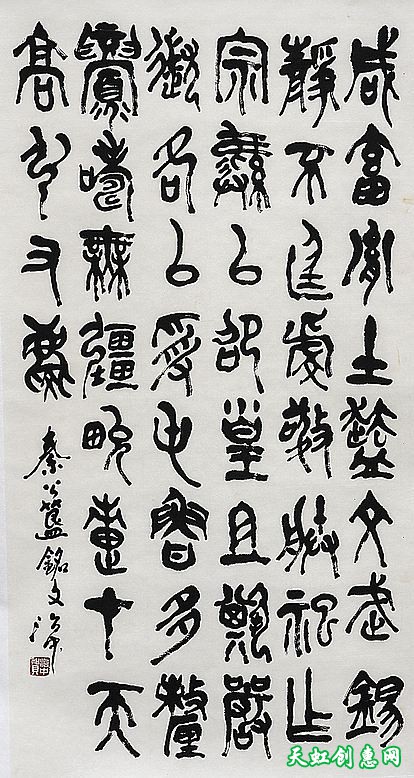 咸畜胤士文武
靜不廷虔敬朕祀乍
宗彝㠯卲皇且嚴
各㠯受屯魯多釐
眉壽無疆畯疐十天
高弘又慶
秦公簋銘文
天虹创意网